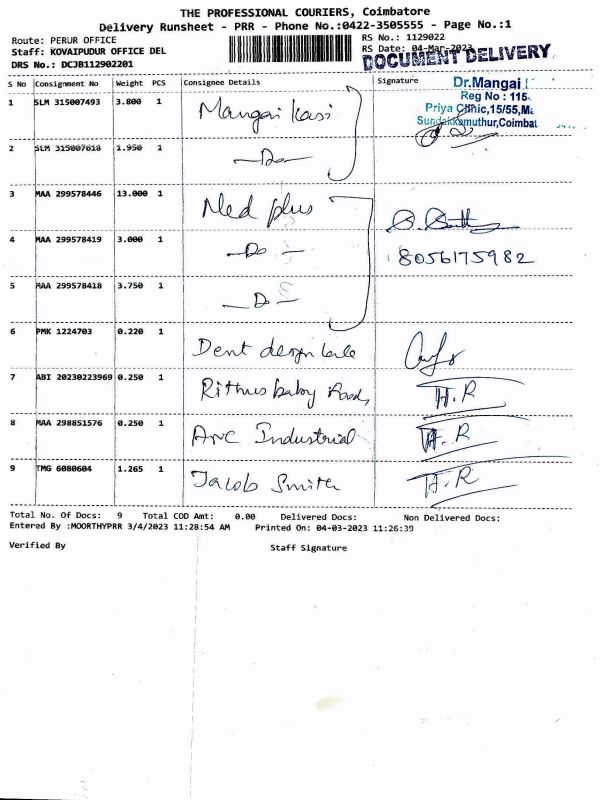 THE PROFESSIONAL COURIERS, Coimbatore
Delivery Runsheet - PRR - Phone No.:0422-3505555 - Page No.:1
Route: PERUR OFFICE
Staff: KOVAIPUDUR OFFICE DEL
DRS No.: DCJB112902201
RS No.: 1129022
RS Date: 04-Mar-2023
DOCUMENT DELIVERY
S No Consignment No Weight PCS Consignee Details Signature
Dr.Mangai
Reg No : 115
Priya Clinic,15/55,Ma
Sundakkamuthur,Coimbat
1 SLM 315007493 3.800 1 Mangai Kasi
2 SLM 315007618 1.950 1 —Do—
3 MAA 299578446 13.000 1 Med plus
4 MAA 299578419 3.000 1 —Do— 8056175982
5 MAA 299578418 3.750 1 —Do—
6 PMK 1224703 0.220 1 Dent design
7 ABI 20230223969 0.250 1 Rithus baby H.R
8 MAA 298851576 0.250 1 Industrial H.R
9 TMG 6080604 1.265 1 Jacob Smith H.R
Total No. Of Docs: 9 Total COD Amt: 0.00 Delivered Docs: Non Delivered Docs:
Entered By :MOORTHYPRR 3/4/2023 11:28:54 AM Printed On: 04-03-2023 11:26:39
Verified By Staff Signature